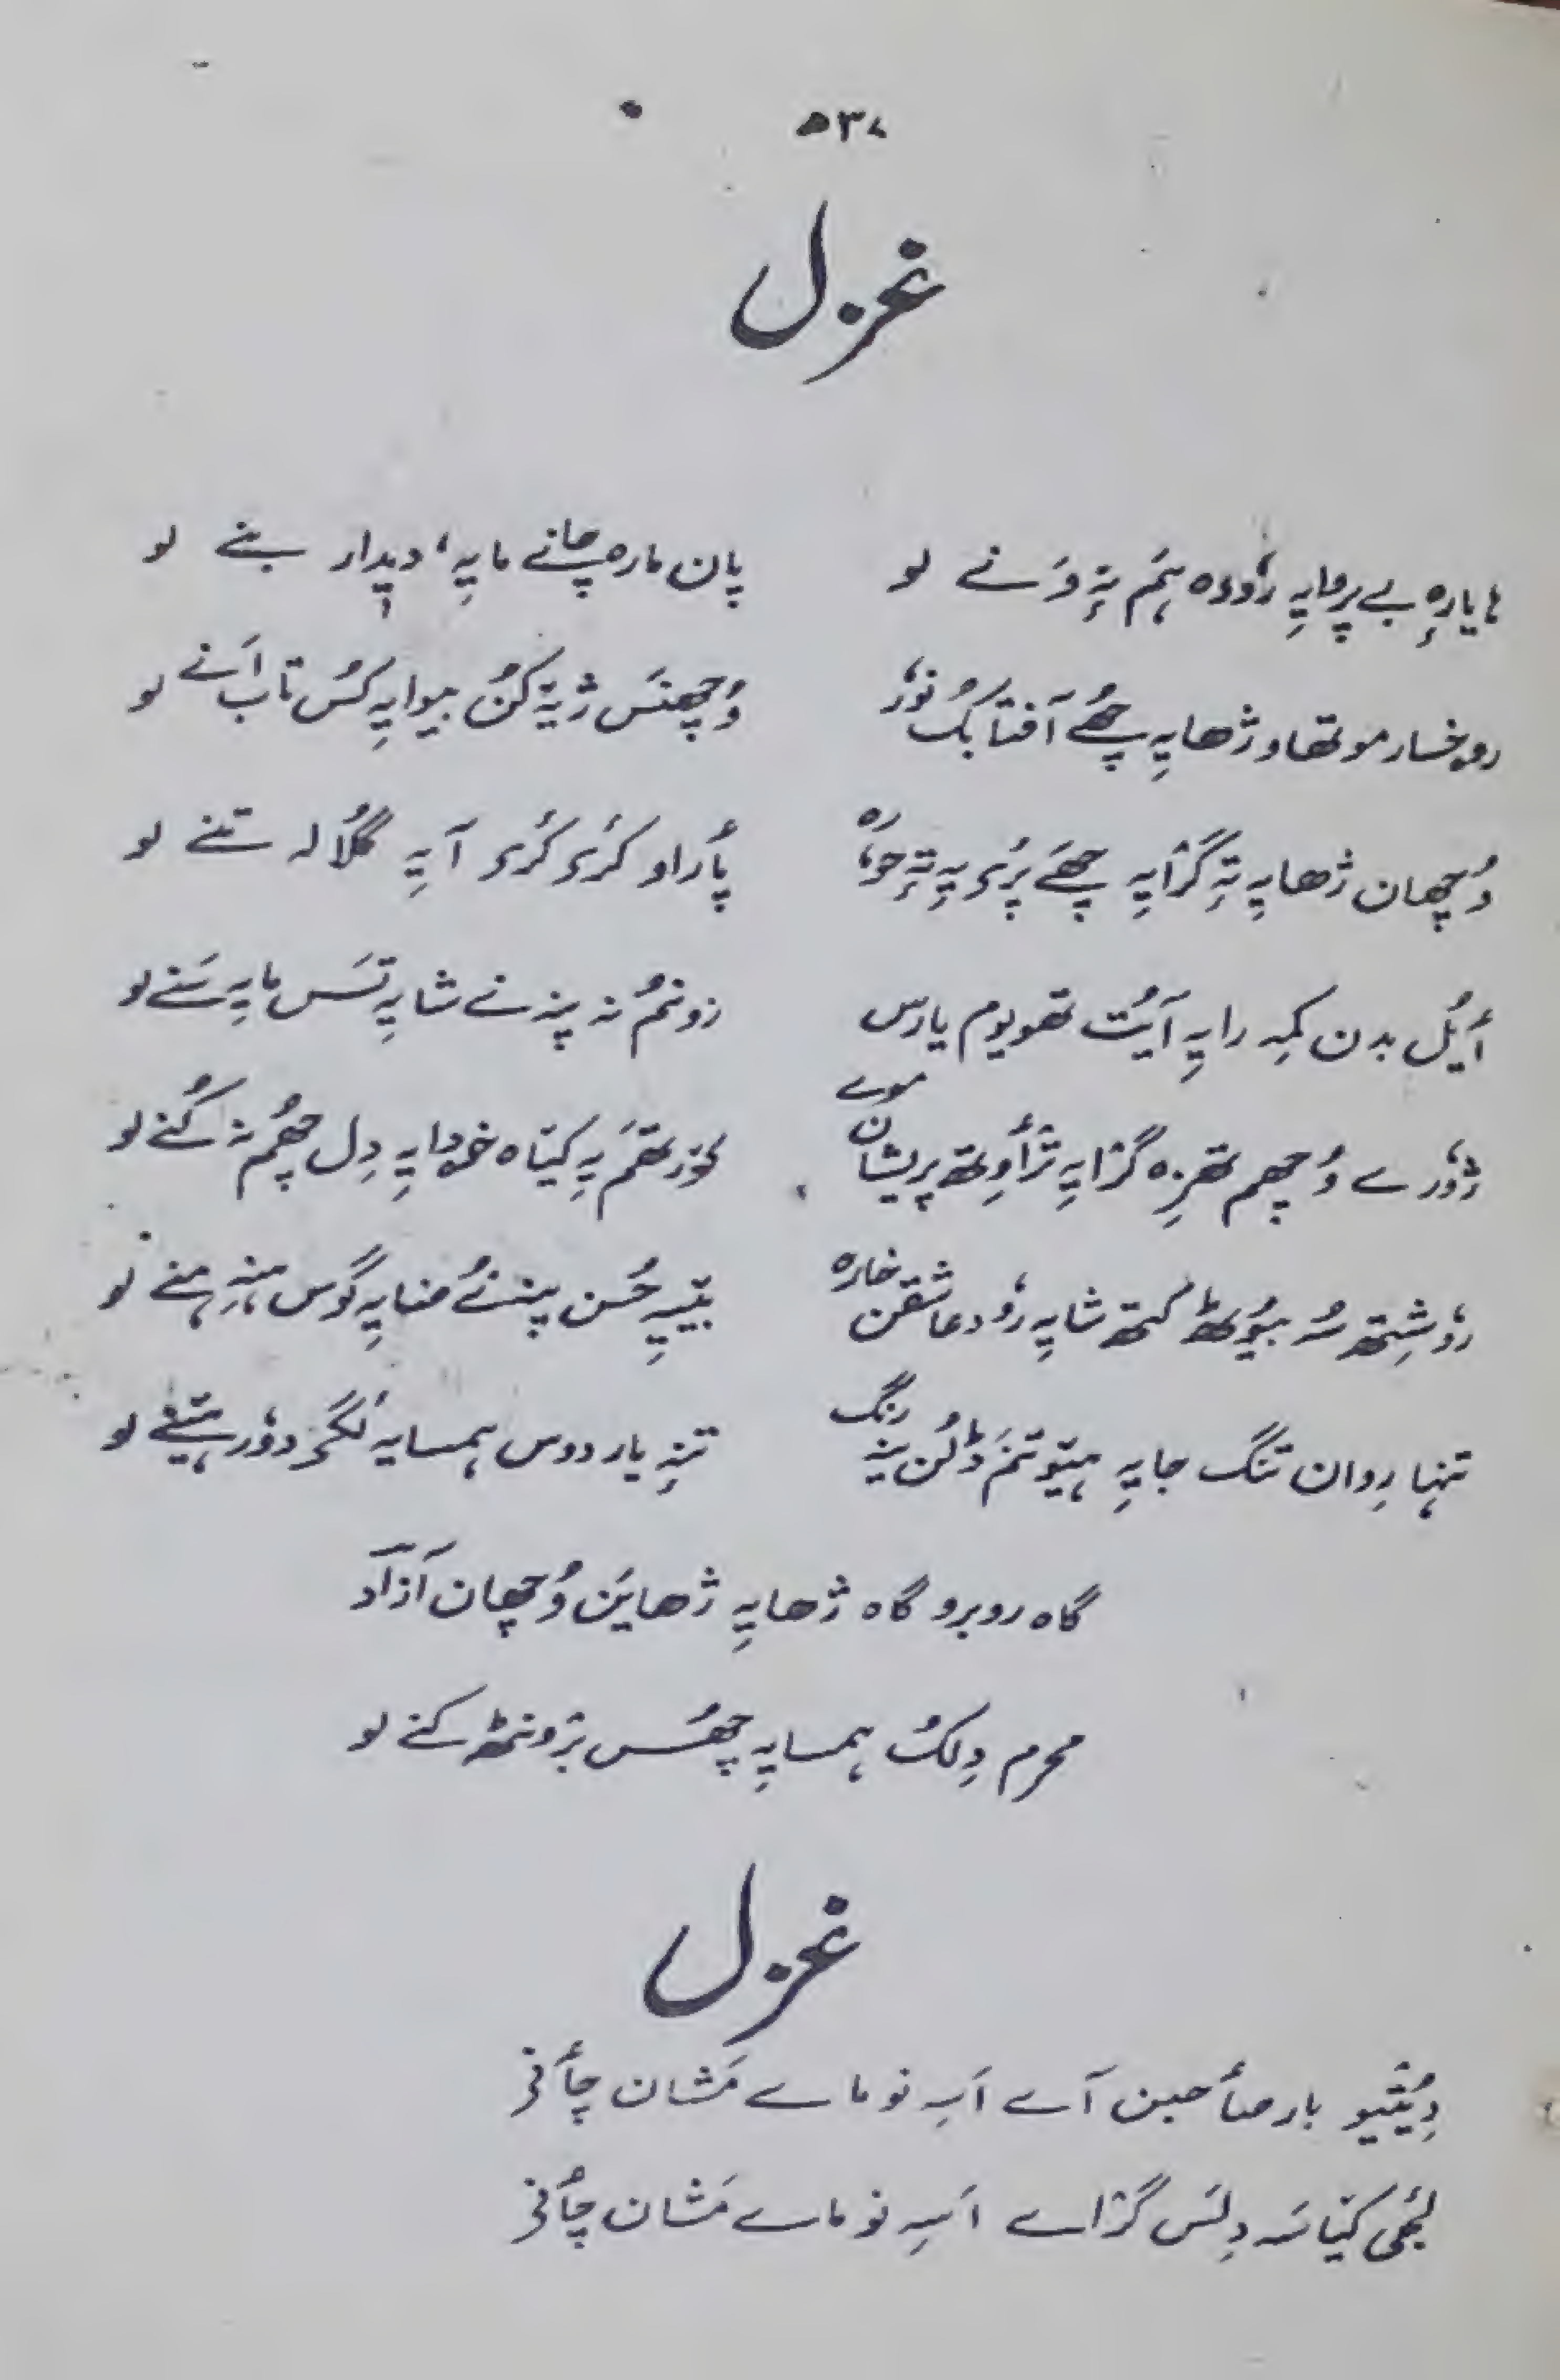 ۵۳۷
غزل
ہا یارِہ بے پروایہِ رٔودہ ہَم تہِ وَنے لو پان مارہ چانے مایہِ، دیدار بنے لو
روخسار موتھاو ژھایہِ چھُے آفتابُک نوٗر وُچھنَس ژیتہِ کُن بیوایہِ کسُ تاب اَنے لو
وُچھان ژھایہِ تہِ گرٛایہِ چھَے پٔری یہِ تہِ حوٗرہ پأراو کٔری کٔری آیہِ گلالہ تنے لو
أیُل بدن کمہِ رایہِ آیُت تھویوم یارس زونمُ نہ پنہ نے شایہِ تسَ مایہِ سَنے لو
دوٗرے وُچھم تھزہ گرٛایہِ ترٛأوِتھ پریشان موے لوٗرتھمَ یہِ کیتاہ خودایہِ دِل چھُم نہ کُنے لو
روٗشِتھ سُہ بیوٗٹھ کتھ شایہِ روٗد عاشقن خارہ بییہِ حُسن پننُے ضایہِ گوس منہِ منے لو
تنہا رِوان تنگ جایہِ ہیتوتمَ ڈلُن یہِ رنگ تنہِ یار دوس ہمسایہ لٔگی دوٗر ہیتنے لو
گاہ روبرو گاہ ژھایہِ ژھاین وُچھان آزاد
محرم دِلُک ہمسایہِ چھُس برٛونٹھ کنے لو
غزل
دِیُتیو بار صأحبن آے اَسہِ نو ماے مَشان چأنی
لٔجی کیتاسہَ دِلسَ گرٛاے اَسہِ نو ماے مَشان چأنی